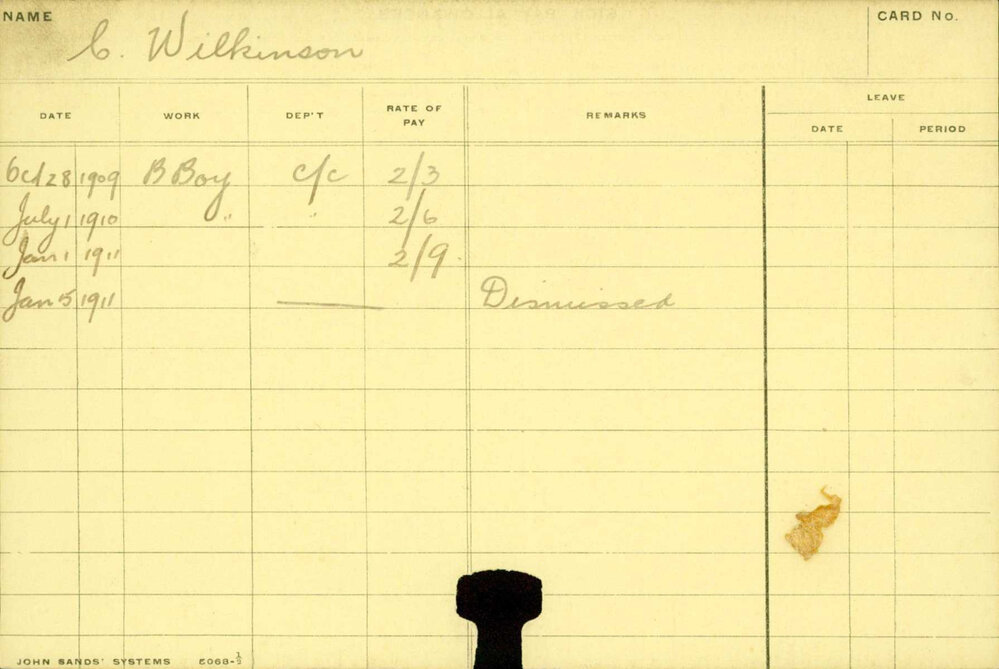 NAME C. Wilkinson CARD No.
DATE WORK DEP'T RATE OF PAY REMARKS LEAVE
DATE PERIOD
Oct 28 1909 B Boy c/c 2/3
July 1 1910 " " 2/6
Jan 1 1911 2/9
Jan 5 1911 — Dismissed
JOHN SANDS' SYSTEMS 6068-½